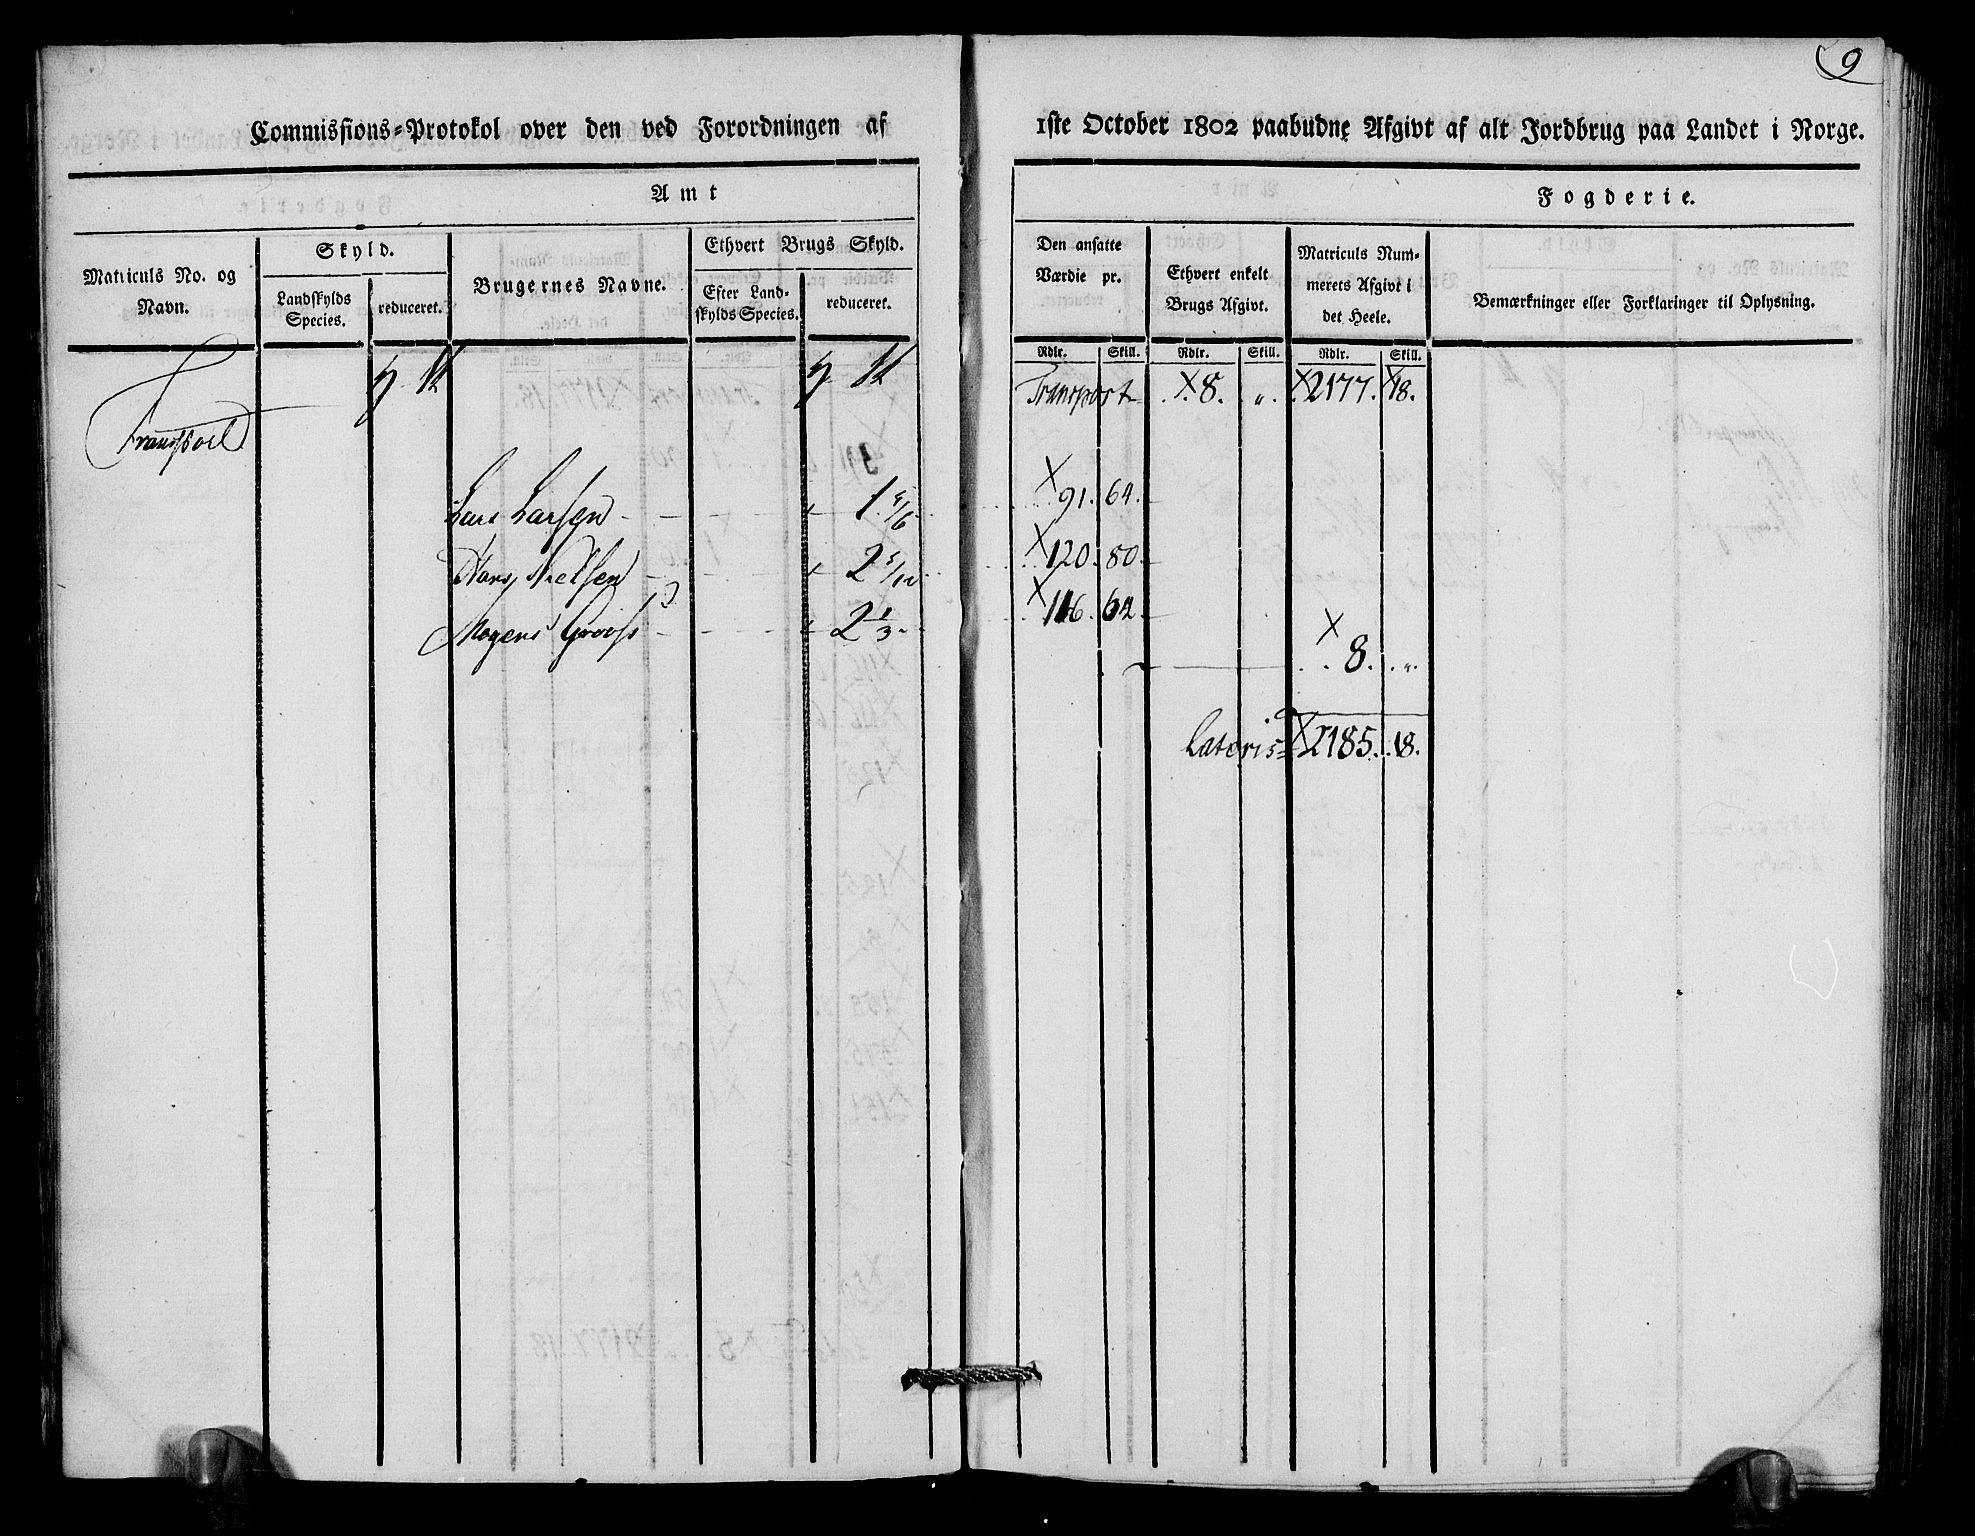 9
Commissions-Protokol over den ved Forordningen af 1ste October 1802 paabudne Afgivt af alt Jordbrug paa Landet i Norge.
Amt Fogderie.
Matriculs No. og Navn.
Skyld.
Landskylds Species.
reduceret.
Brugernes Navne.
Ethvert Brugs Skyld.
Efter Landskylds Species.
reduceret.
Den ansatte Værdie pr.
Ethvert enkelt Brugs Afgivt.
Matriculs Nummerets Afgivt i det Heele.
Bemærkninger eller Forklaringer til Oplysning.
Rdlr. Skill. Rdlr. Skill. Rdlr. Skill.
Transport 8. „ 2177. 18.
Transport
Lars Larsen 1 5/6 91. 64.
Hans Nielsen 2 5/12 120. 80.
Mogens 2 1/3 116. 64.
8. „
Lateris 2185. 18.